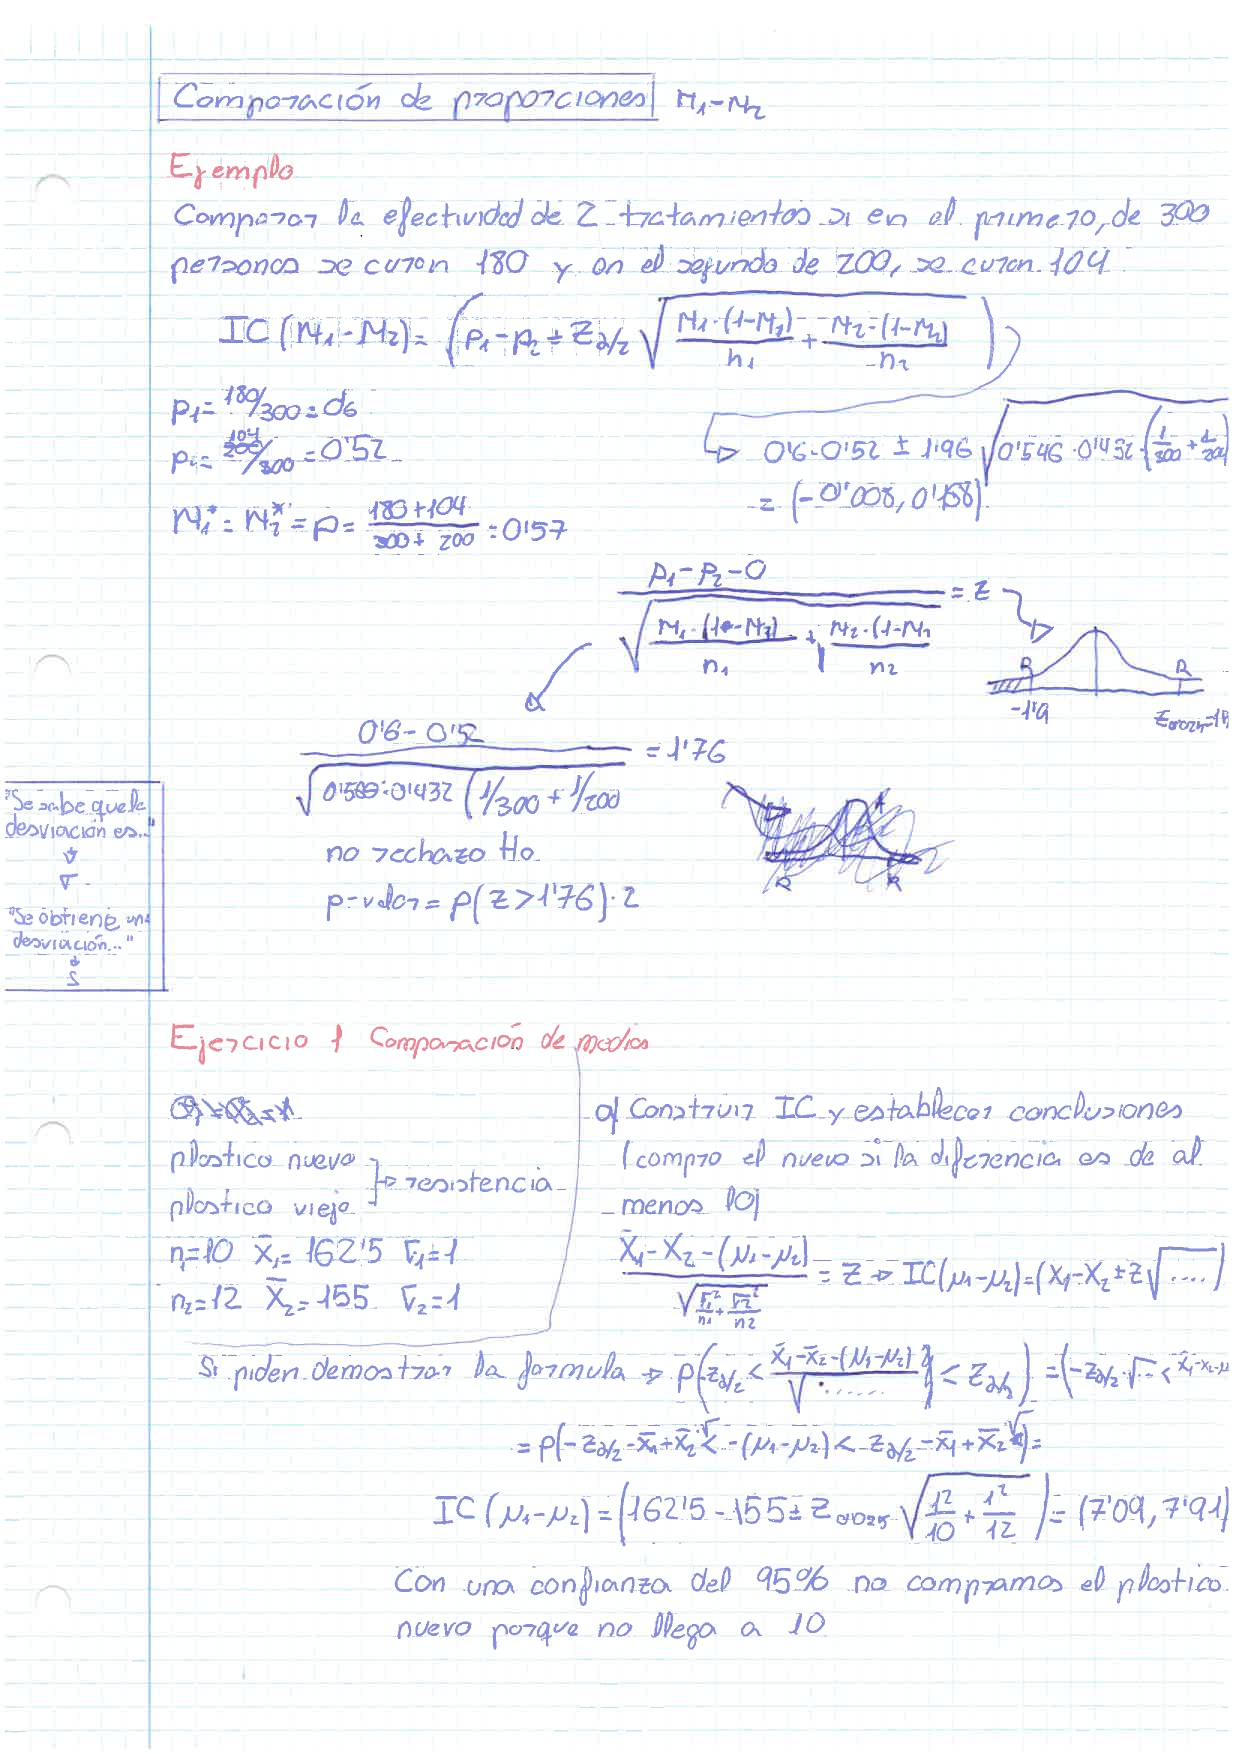 Comparación de proporciones π₁-π₂
Ejemplo
Comparar la efectividad de 2 tratamientos si en el primero, de 300
personas se curan 180 y en el segundo de 200, se curan 104
IC (π₁-π₂) = (p₁-p₂ ± Z α/2 √(π₁·(1-π₁)/n₁ + π₂·(1-π₂)/n₂))
p₁ = 180/300 = 0'6
p₂ = 104/300 = 0'52
0'6-0'52 ± 1'96 √(0'546·0'432·(1/300 + 1/200)
= (-0'008, 0'168)
π₁* = π₂* = p = (180+104)/(300+200) = 0'57
(p₁-p₂-0)/√(π₁·(1-π₁)/n₁ + π₂·(1-π₂)/n₂) = Z
R R
-1'9
(0'6-0'52)/√(0'432 (1/300 + 1/200) = 1'76
no rechazo H₀
p-valor = P(Z>1'76)·2
"Se sabe que la
desviación es..."
↓
σ
"Se obtiene una
desviación..."
↓
S
Ejercicio 1 Comparación de medias
plastico nuevo
plastico viejo
→ resistencia
n₁=10 X̄₁= 162'5 σ₁=1
n₂=12 X̄₂=155 σ₂=1
a) Construir IC y establecer conclusiones
(compro el nuevo si la diferencia es de al
menos 10)
(X̄₁-X₂-(μ₁-μ₂))/√(σ₁²/n₁ + σ₂²/n₂) = Z → IC(μ₁-μ₂)=(X₁-X₂ ± Z√....)
Si piden demostrar la formula → P(-Z α/2 < (X̄₁-X̄₂-(μ₁-μ₂))/√...... < Z α/2) = (-Z α/2·√... < X̄₁-X₂-μ
= P(-Z α/2 √ -X̄₁+X̄₂ < -(μ₁-μ₂) < Z α/2 √ -X̄₁+X̄₂) =
IC (μ₁-μ₂) = (162'5-155 ± Z 0'025 √(1²/10 + 1²/12)) = (7'09, 7'91)
Con una confianza del 95% no compramos el plastico
nuevo porque no llega a 10